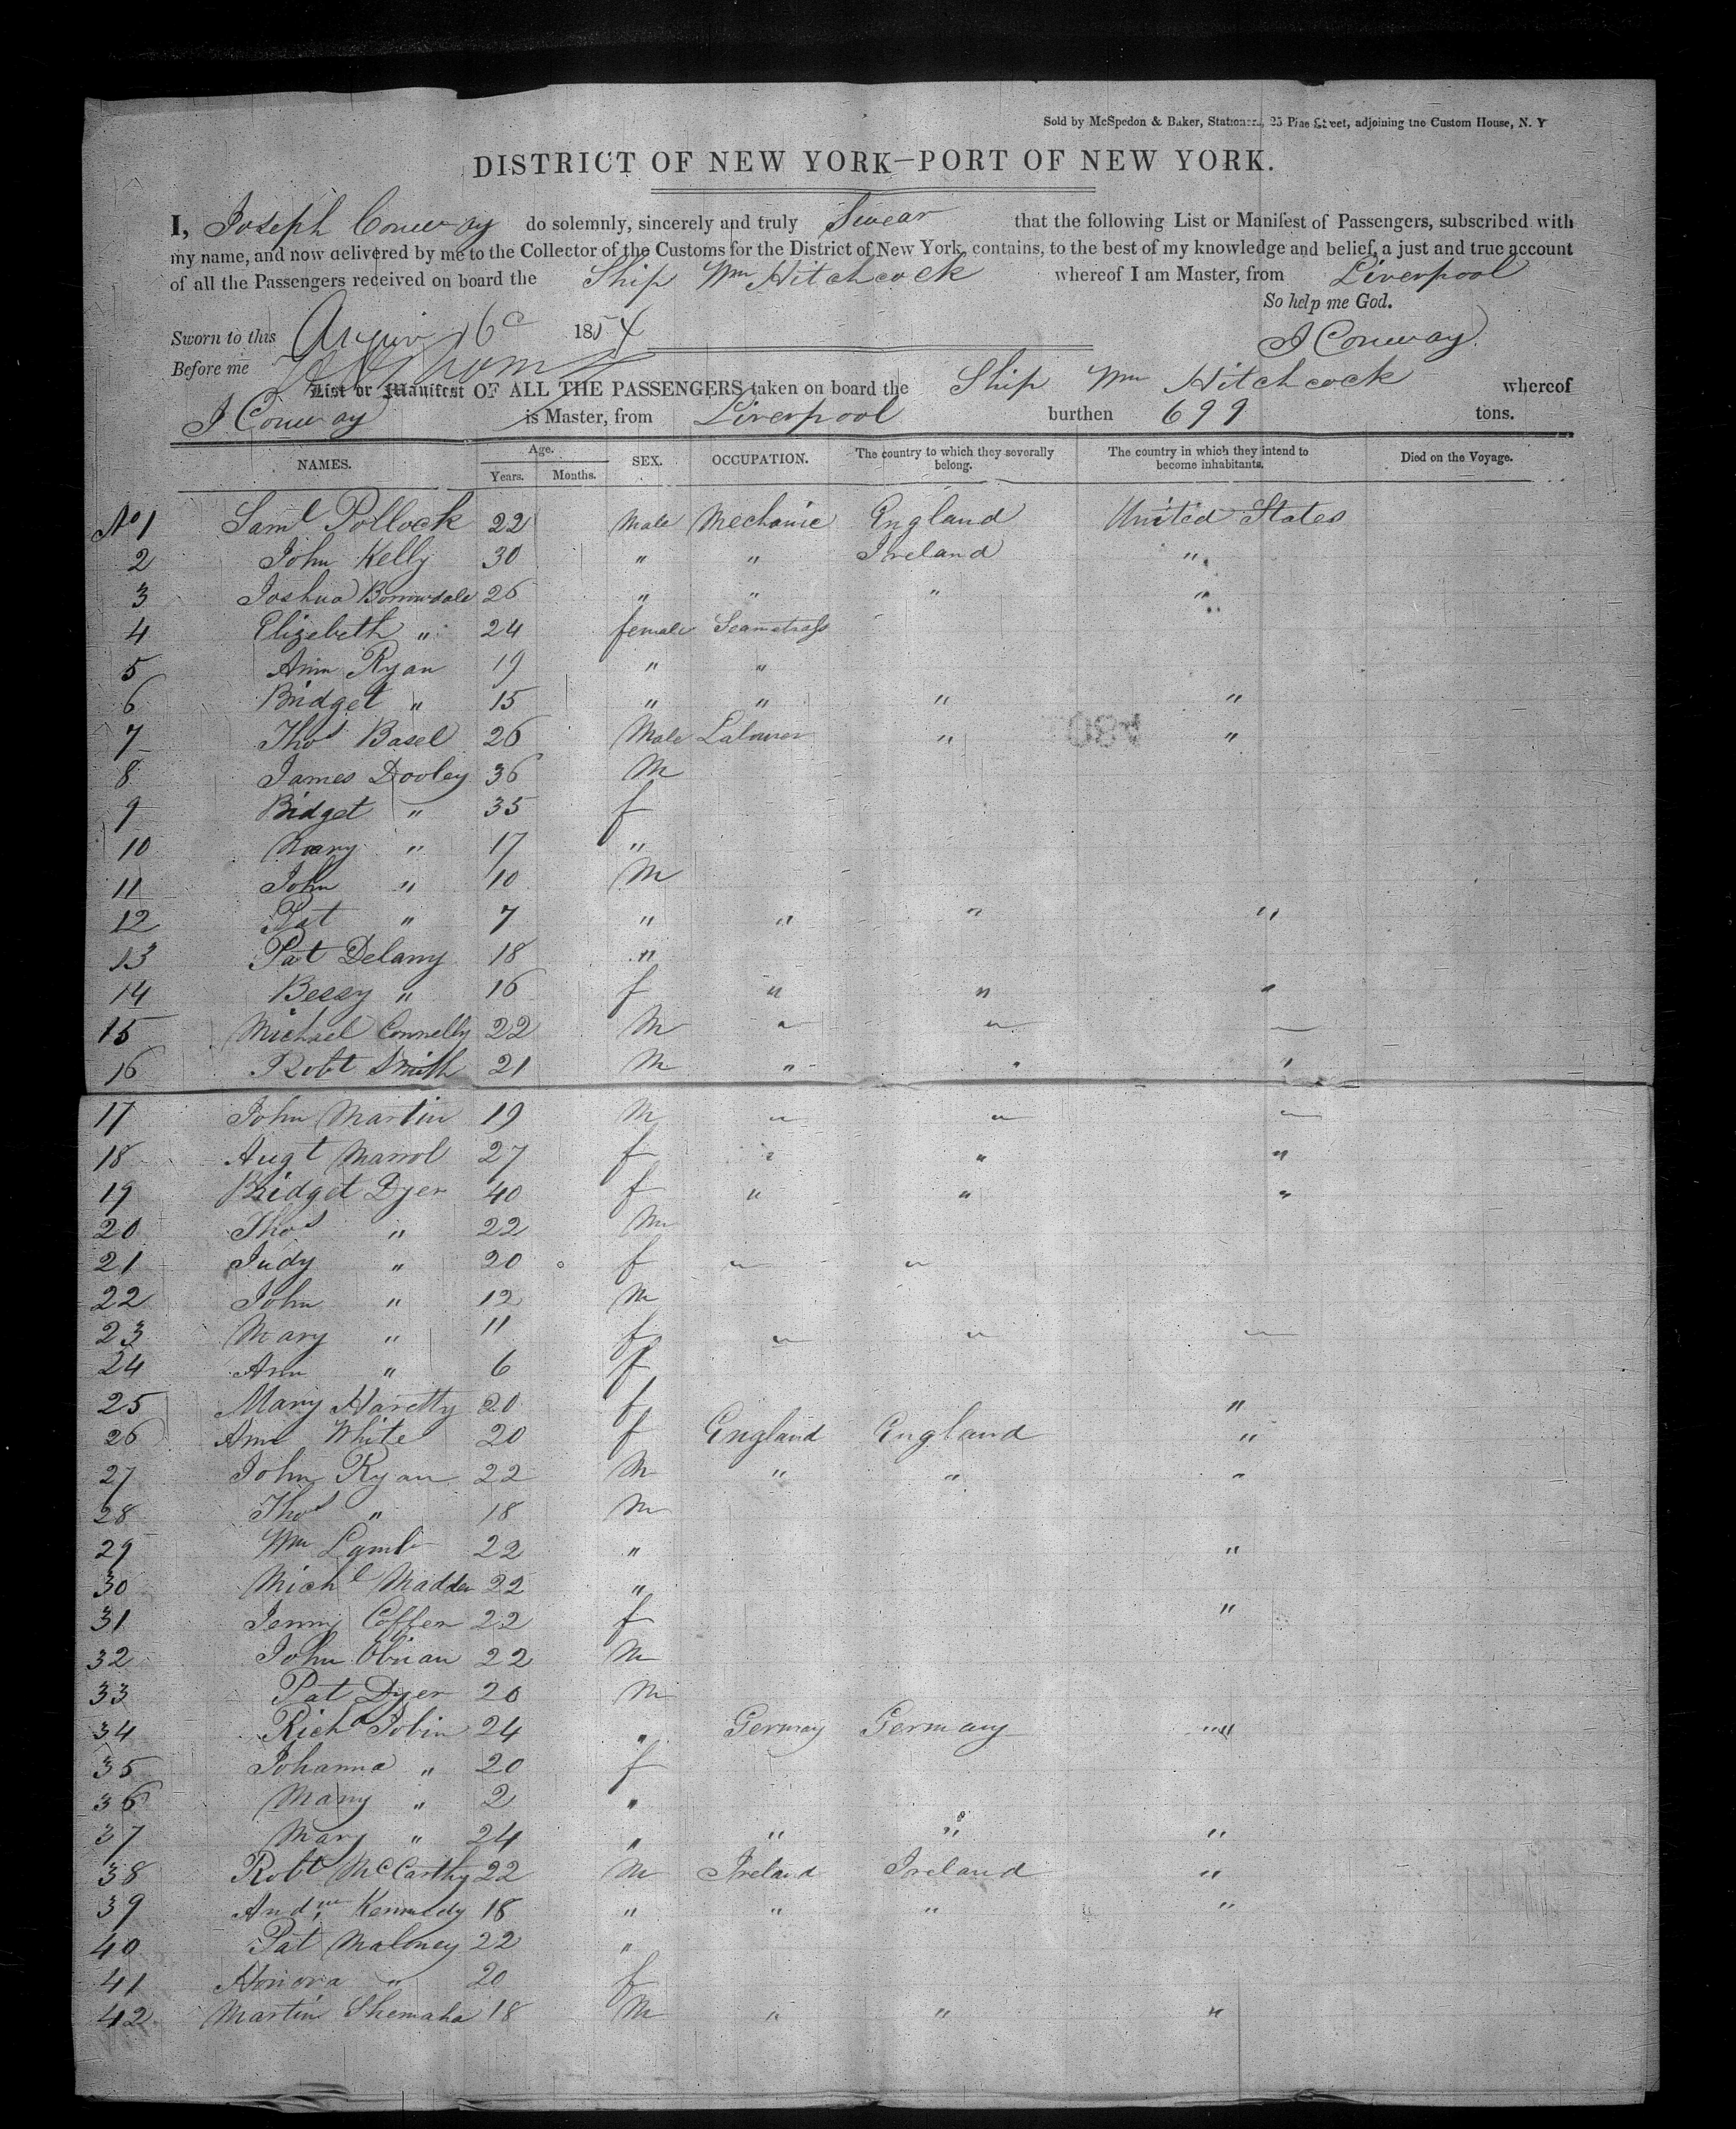 Sold by McSpedon & Baker, Stationers, 25 Pine Street, adjoining the Custom House, N. Y
DISTRICT OF NEW YORK—PORT OF NEW YORK.
I, Joseph Conway do solemnly, sincerely and truly Swear that the following List or Manifest of Passengers, subscribed with
my name, and now delivered by me to the Collector of the Customs for the District of New York, contains, to the best of my knowledge and belief, a just and true account
of all the Passengers received on board the Ship Wm Hitchcock whereof I am Master, from Liverpool
So help me God.
Sworn to this 1854
J Conway
Before me
List or Manifest OF ALL THE PASSENGERS taken on board the Ship Wm Hitchcock whereof
J Conway is Master, from Liverpool burthen 699 tons.
NAMES. Age. Years. Months. SEX. OCCUPATION. The country to which they severally belong. The country in which they intend to become inhabitants. Died on the Voyage.
No 1 Saml Pollock 22 Male Mechanic England United States
2 John Kelly 30 " " Ireland "
3 Joshua 26 " " " "
4 Elizebeth " 24 female Seamstress
5 Ann Ryan 19 " "
6 Bridget " 15 " " " "
7 Thos Basel 26 Male Labourer " "
8 James Dooley 36 M
9 Bidget " 35 f
10 Mary " 17 "
11 John " 10 M
12 Pat " 7 " " " "
13 Pat Delany 18 "
14 Bessy " 16 f " " "
15 Michael Connelly 22 M " " "
16 Robt Smith 21 M " " "
17 John Martin 19 M " " "
18 Augt 27 f " " "
19 Bridget Dyer 40 f " " "
20 Thos " 22 M
21 Judy " 20 f " "
22 John " 12 M
23 Mary " 11 f " " "
24 Ann " 6 f
25 Mary 20 f "
26 Ann White 20 f England England "
27 John Ryan 22 M " " "
28 Thos " 18 M
29 Wm Lamb 22 " "
30 Michl Madden 22 "
31 Jenny Coffen 22 f "
32 John Obrian 22 M
33 Pat Dyer 20 M
34 Richd Tobin 24 " Germay Germany "
35 Johanna " 20 f
36 Mary " 2 "
37 Mary " 24 " " " "
38 Robt McCarthy 22 M Ireland Ireland "
39 Andw Kennedy 18 " " " "
40 Pat Maloney 22 "
41 Honora " 20 f
42 Martin Shemaha 18 M " " "